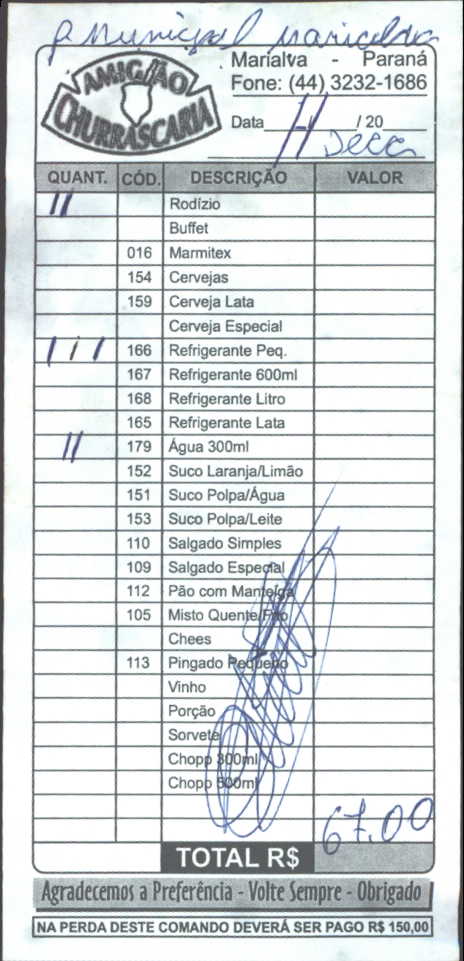 P Municipal
AMIGÃO
CHURRASCARIA
Marialva - Paraná
Fone: (44) 3232-1686
Data / / 20
QUANT. CÓD. DESCRIÇÃO VALOR
11 Rodízio
Buffet
016 Marmitex
154 Cervejas
159 Cerveja Lata
Cerveja Especial
1 1 1 166 Refrigerante Peq.
167 Refrigerante 600ml
168 Refrigerante Litro
165 Refrigerante Lata
11 179 Água 300ml
152 Suco Laranja/Limão
151 Suco Polpa/Água
153 Suco Polpa/Leite
110 Salgado Simples
109 Salgado Especial
112 Pão com Manteiga
105 Misto Quente/Frio
Chees
113 Pingado Pequeno
Vinho
Porção
Sorvete
Chopp 300ml
Chopp 500ml
67,00
TOTAL R$
Agradecemos a Preferência - Volte Sempre - Obrigado
NA PERDA DESTE COMANDO DEVERÁ SER PAGO R$ 150,00